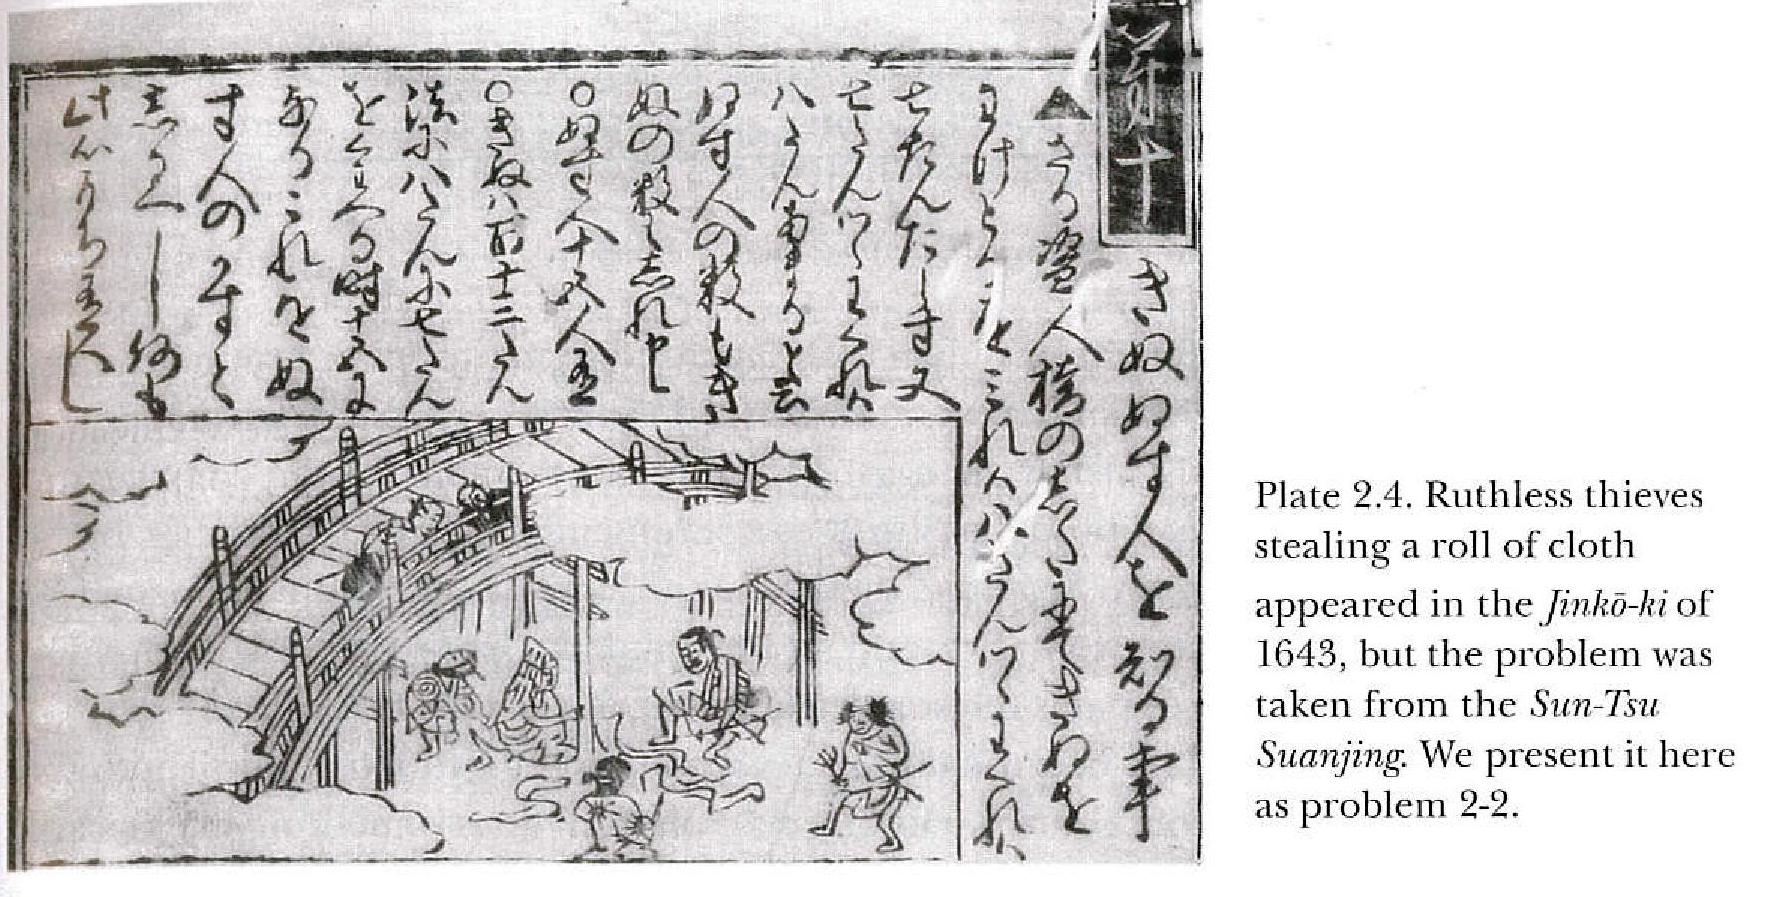 第十
きぬぬす人を知る事
▲さる盗人橋の志たにてきぬを
わけとるをミれハ八たんつゝわくれハ
七たんたらす又
七たんつゝわくれハ
八たんあまると云
ぬす人の数もき
ぬの数も志れ
○ぬす人十五人
○きぬハ百十三たん
法に八たんに七たん
をくわへる時十五に
なるこれをぬ
す人のかすと
志るへし何も
此心
Plate 2.4. Ruthless thieves
stealing a roll of cloth
appeared in the Jinkō-ki of
1643, but the problem was
taken from the Sun-Tsu
Suanjing. We present it here
as problem 2-2.